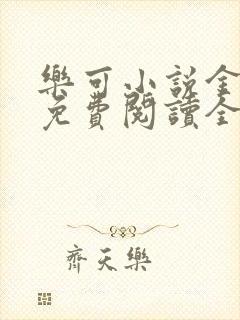 樂可小説全
免費閱讀全
齊天樂